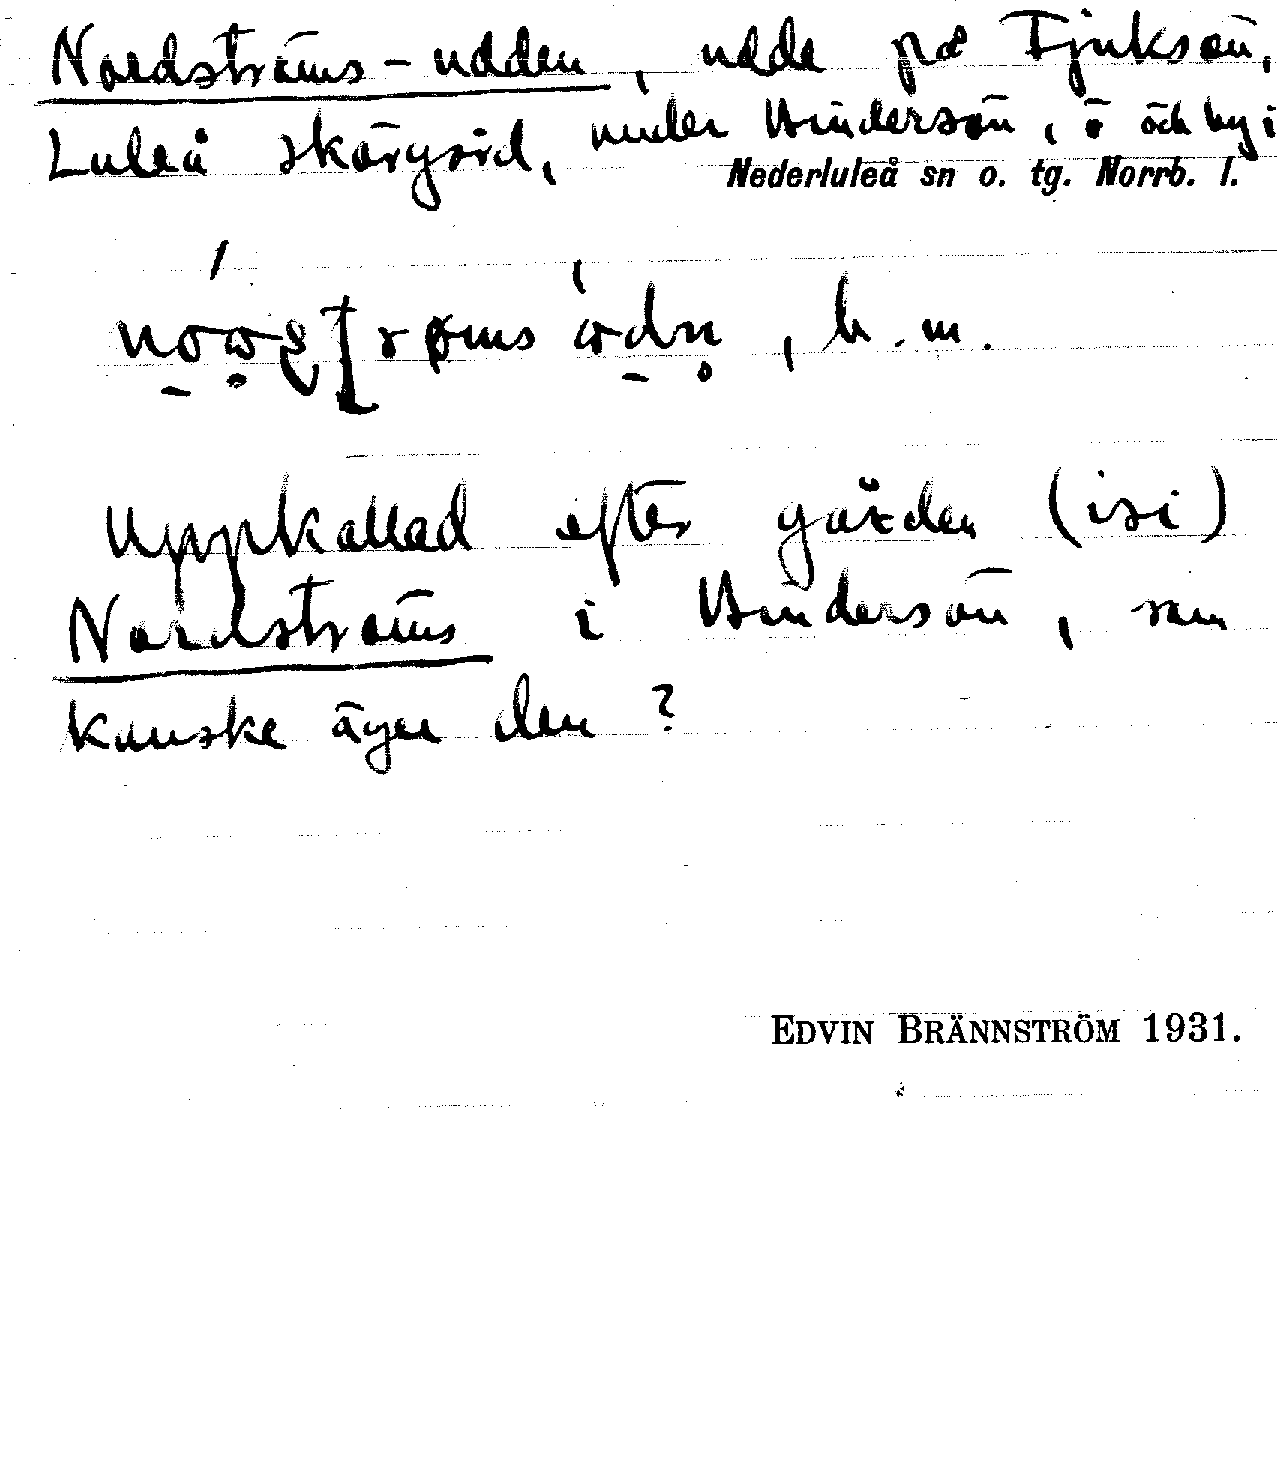 Nordströms-udden, udde på Tjuksön,
Luleå skärgård, under Hindersön, ö och by i
Nederluleå sn o. tg. Norrb. l.
, b. m.
Uppkallad efter gården (isi)
Nordströms i Hindersön, som
kanske äger den?
EDVIN BRÄNNSTRÖM 1931.